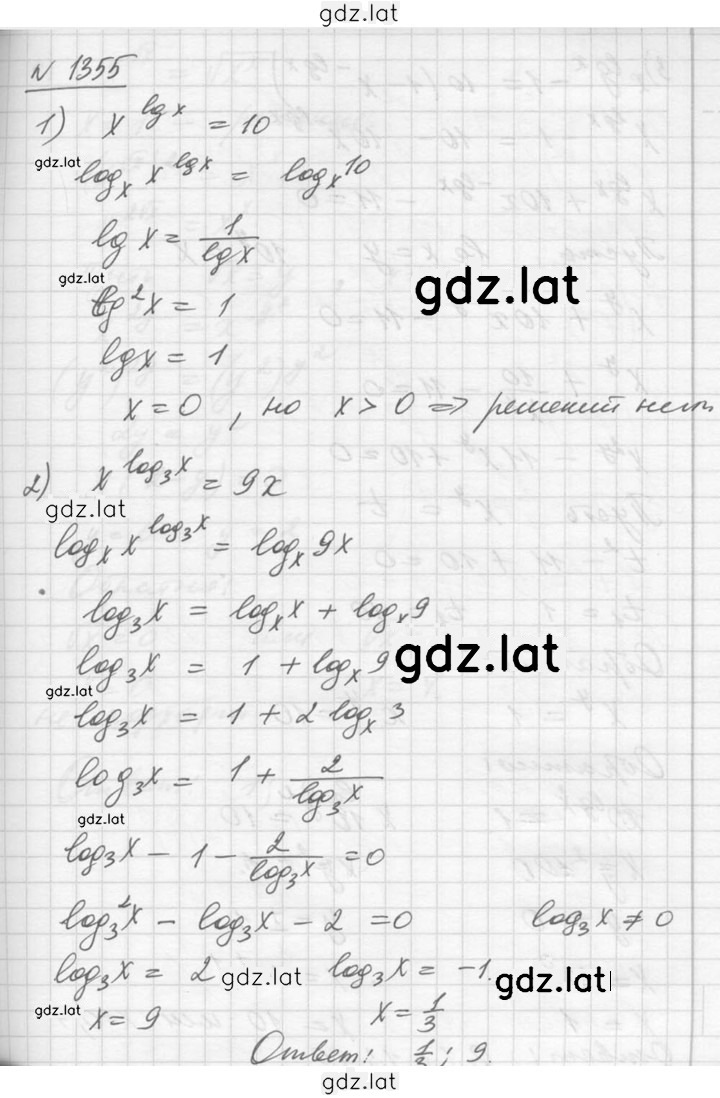 gdz.lat
N 1355
1) x^lg x = 10
gdz.lat
log_x x^lg x = log_x 10
lg x = 1/lg x
gdz.lat
lg²x = 1
gdz.lat
lg x = 1
x = 0, но x > 0 => решений нет
2) x^log₃x = 9x
gdz.lat
log_x x^log₃x = log_x 9x
log₃x = log_x x + log_x 9
log₃x = 1 + log_x 9
gdz.lat
gdz.lat
log₃x = 1 + 2 log_x 3
log₃x = 1 + 2/log₃x
gdz.lat
log₃x - 1 - 2/log₃x = 0
log₃²x - log₃x - 2 = 0 log₃x ≠ 0
log₃x = 2 gdz.lat log₃x = -1. gdz.lat
gdz.lat
x = 9 x = 1/3
Ответ: 1/3; 9.
gdz.lat